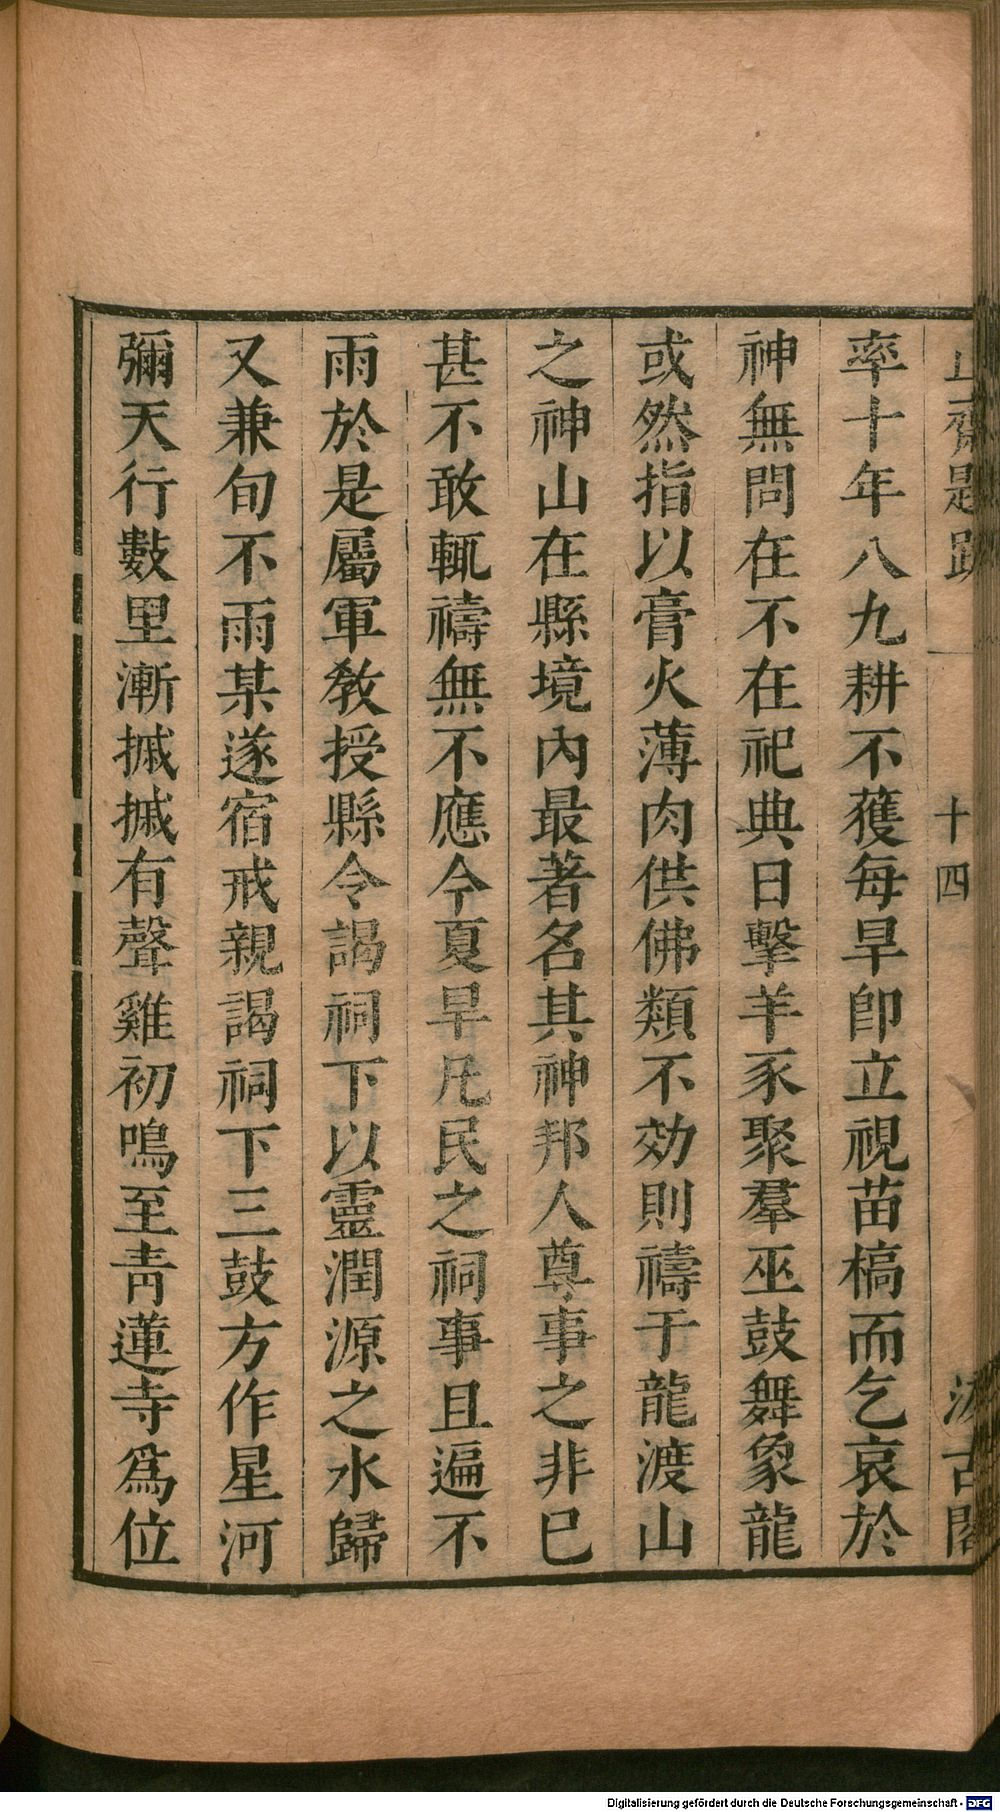 止齋題跋 十四 汲古閣
率十年八九耕不獲每旱卽立視苗槁而乞哀於
神無問在不在祀典日擊羊豕聚羣巫鼓舞象龍
或然指以膏火薄肉供佛類不効則禱于龍渡山
之神山在縣境內最著名其神邦人尊事之非已
甚不敢輒禱無不應今夏旱凡民之祠事且遍不
雨於是屬軍教授縣令謁祠下以靈潤源之水歸
又兼旬不雨某遂宿戒親謁祠下三鼓方作星河
彌天行數里漸摵摵有聲雞初鳴至青蓮寺爲位
Digitalisierung gefördert durch die Deutsche Forschungsgemeinschaft - DFG